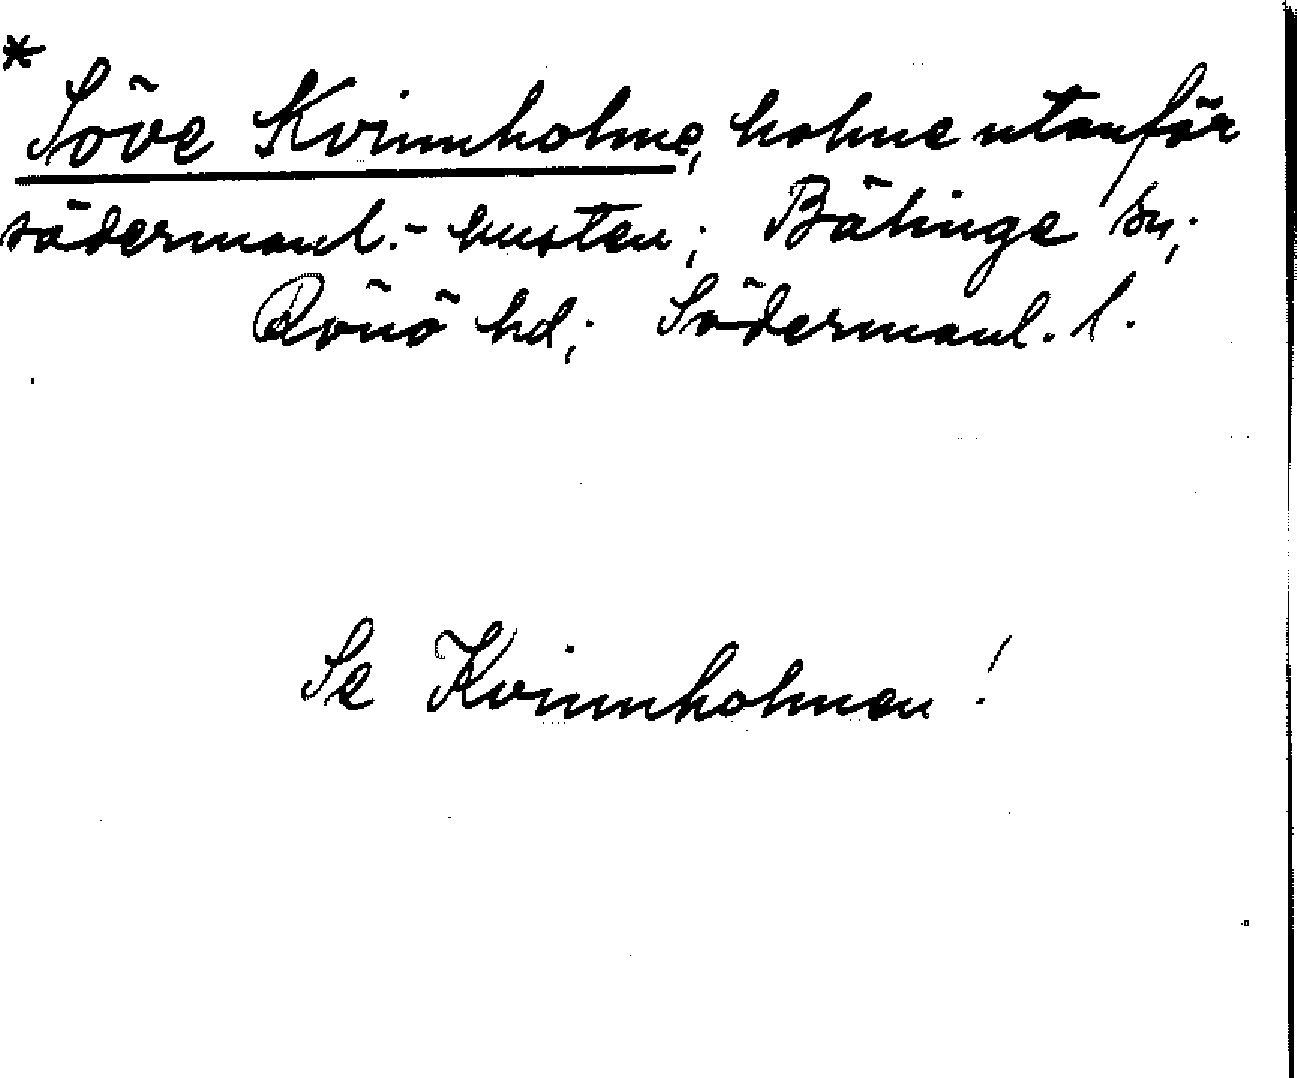 * Söve Kvinnholme, holme utanför
södermanl.- kusten; Bälinge sn;
Rönö hd; Södermanl. l.
Se Kvinnholmen!